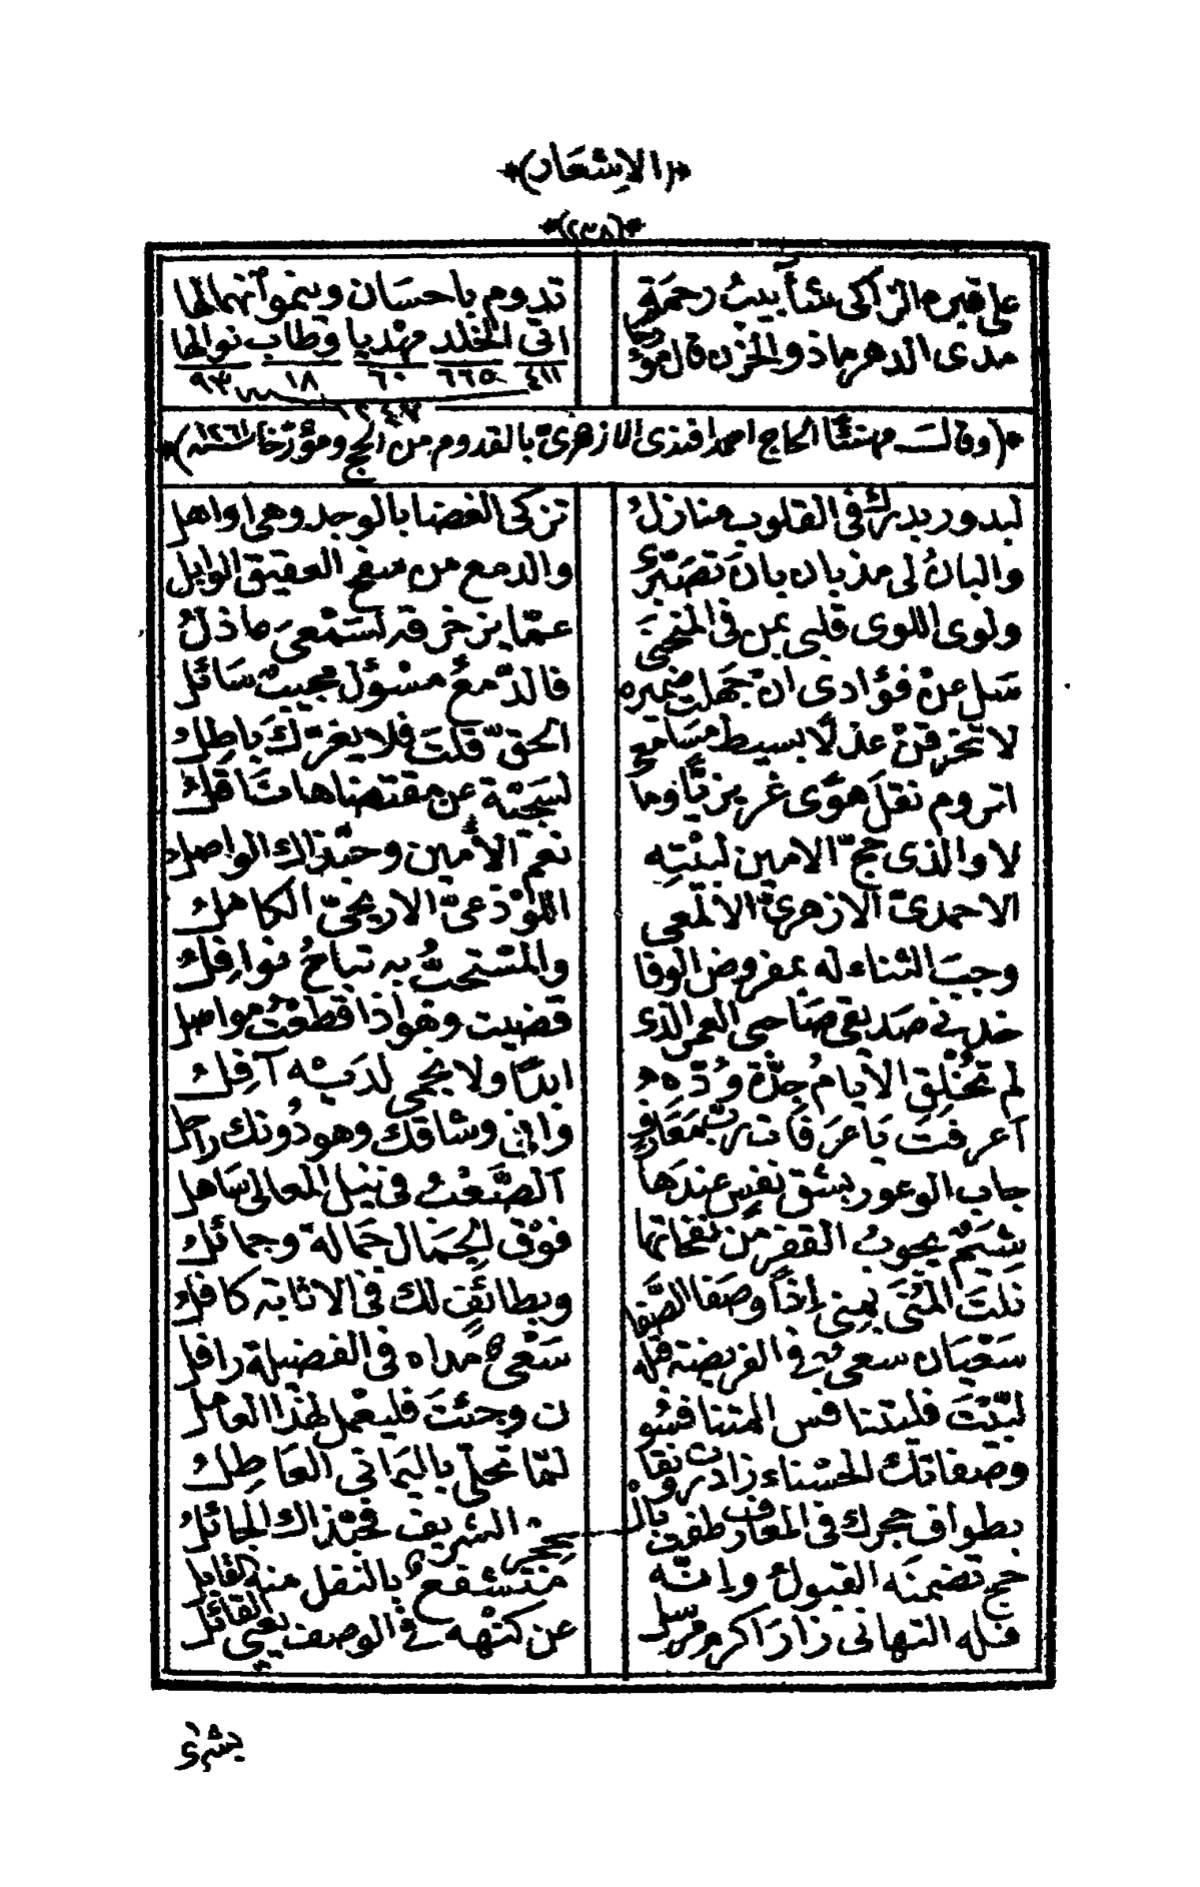 *(الاشعار)*
*(٢٣٨)*
على قبره الزاكى شئآبيبُ رحمةٍ تدوم باحسان وينمو آنهمالها
مدى الدهر ماذو الحزن قال مؤرخا اتى الخلد مهديا وطاب نوالها
٤١١ ٦٦٥ ٦٠ ١٨ ٩٣
١٢٤٧
*(وقالت مهنئا الحاج احمد افندى الازهرىّ بالقدوم من الحج ومؤرخا سنة ١٢٦١)*
لبدور بدرك فى القلوب منازلُ تزكى الغضا بالوجد وهى اواهل
والبانُ لى مذ بان بانَ تصبّرى والدمع من سفح العقيق الوابل
ولوى اللوى قلبى بمن فى المنحنى عمّا يزخرفه لسَمْعىَ عاذلُ
سَل عنْ فؤادى ان جهلت ضميره فالدّمعُ مسْؤل مجيبٌ سَائل
لا تخرقنْ عذلًا بسيط مسَامعى الحقّ قلتَ فلا يغرّك باطلُ
اتروم نقلَ هوًى غريزيًّا وما لسَجيّة عن مقتضاها ناقلُ
لا والذى حجّ الامين لبيْته نعم الأمين وحبّذاك الواصل
الاحمدىّ الازهرىّ الالمعى اللوْذعىّ الاريحىّ الكاملُ
وجبَ الثناء له بمفروض الوفا والمسْتحبُّ به تباحُ نوافلُ
خدنى صديقى صَاحبى العمر الذى قضيت وهو اذا قطعْتُ مواصل
لم تُخْلِق الأيامُ جِدّةَ وُدّه ابدًا ولا ينحى لديْه آفلُ
آعرفتَ يا عرَفات ربّ مَعَارف وافى وشاقك وهو دُونك راحل
جاب الوعور بشق نفسٍ عندَها الصّعْبُ فى نيل المعالى سَاهل
شيَمٌ يجوبُ القفر من نفحاتها فوْق الجمَال حَمالة وجمائلُ
نلتَ المنَى بمنى إذًا وصَفا الصَّفا وبطائف لك فى الاثابة كافلُ
سَعْيان سعى فى الفريضة فضله سَعْى مداه فى الفضيلة رافل
لبّيْتَ فليتنافس المتنافسُو ن وجئتَ فليعْمل لهذا العامل
وصفاتك الحسْناء زادت رونقا لمّا تحلى باليمانى العَاطلُ
بطواف حجرك فى المعارف طفت بالـ حجر الشريف فحبّذاك الجائلُ
حج تضمنَه القبولُ وإنّه متشفع بالنفل منه القابل
فله التهانى زار اكرم مرسل عن كنْهه فى الوصف يعيى القائل
بشرى